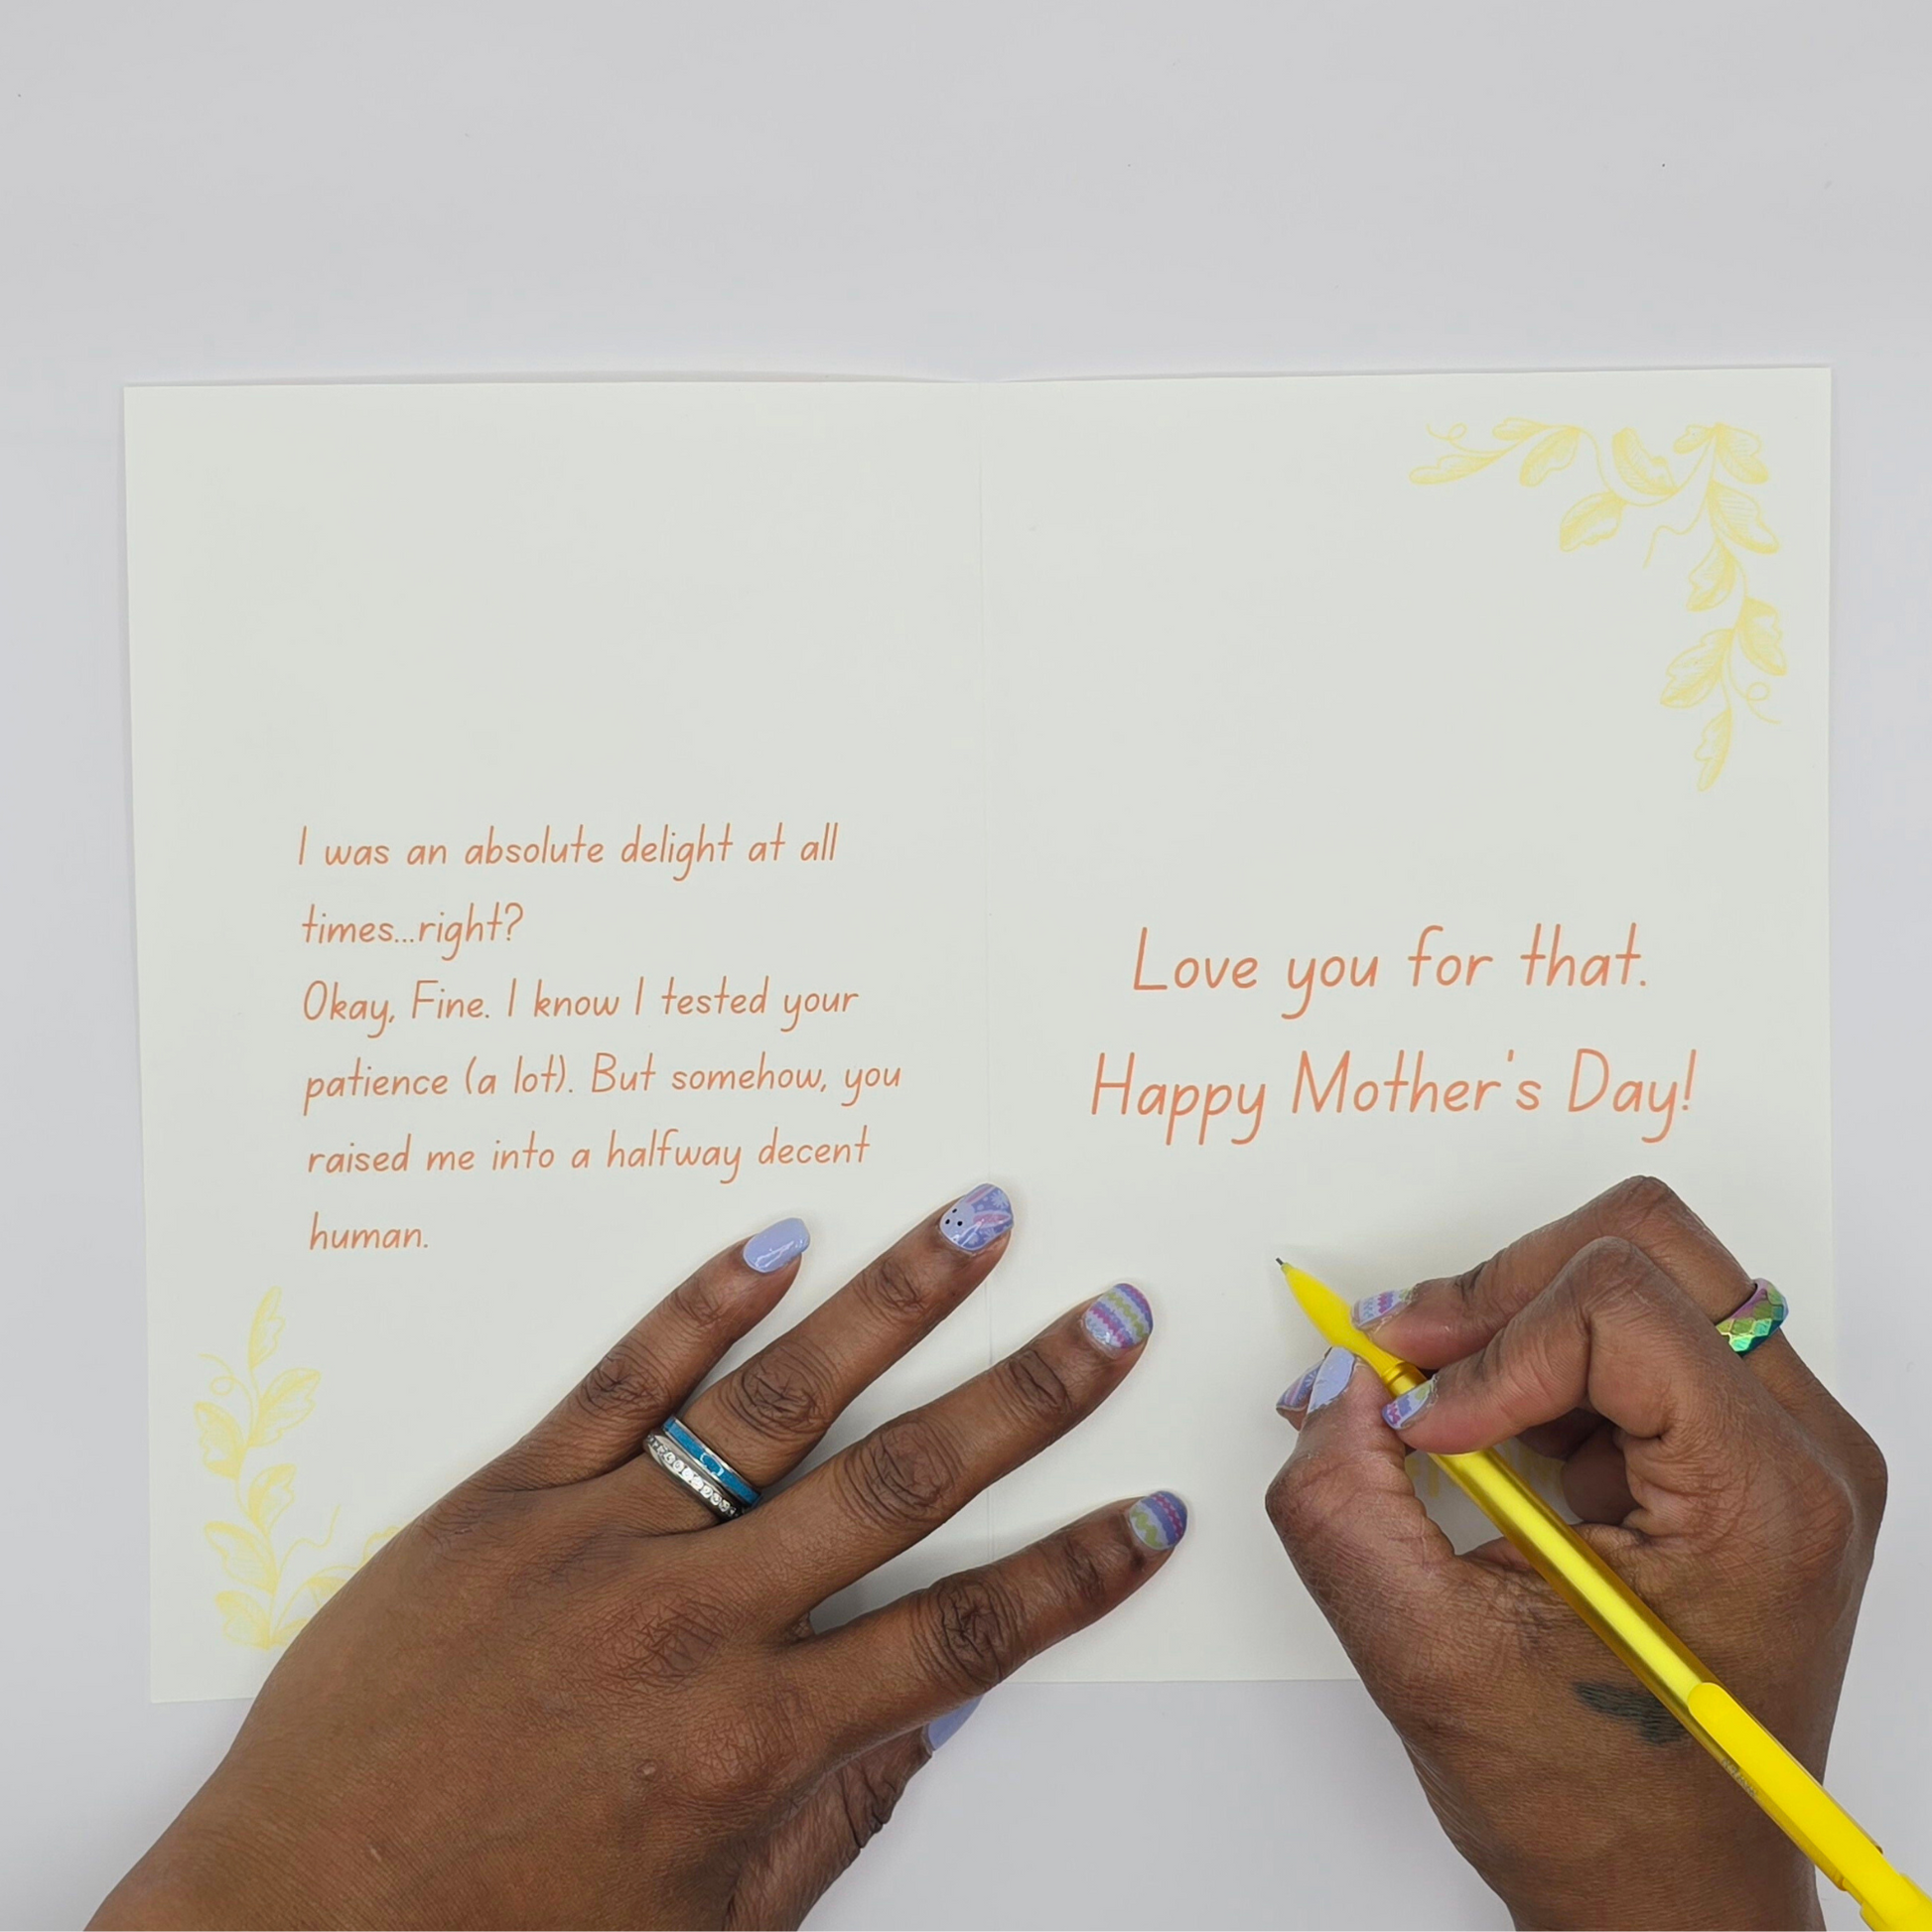 I was an absolute delight at all
times...right?
Okay, Fine. I know I tested your
patience (a lot). But somehow, you
raised me into a halfway decent
human.
Love you for that.
Happy Mother's Day!